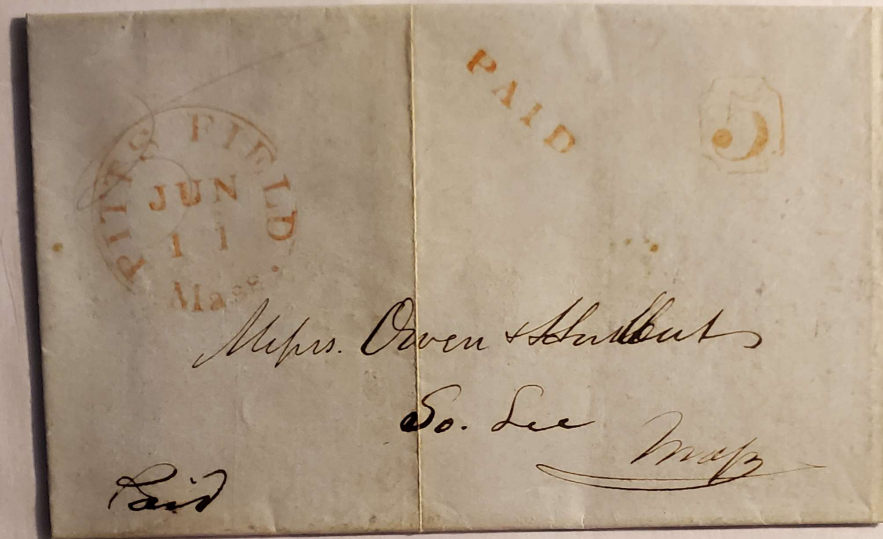 PAID
5
PITTSFIELD
JUN
11
Mass.
Messrs. Owen & Hurlbut
So. Lee
Mass
Paid